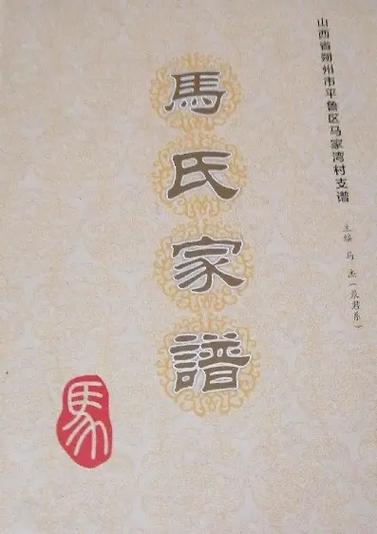 山西省朔州市平鲁区马家湾村支谱
主编 马 杰
馬氏家譜
馬